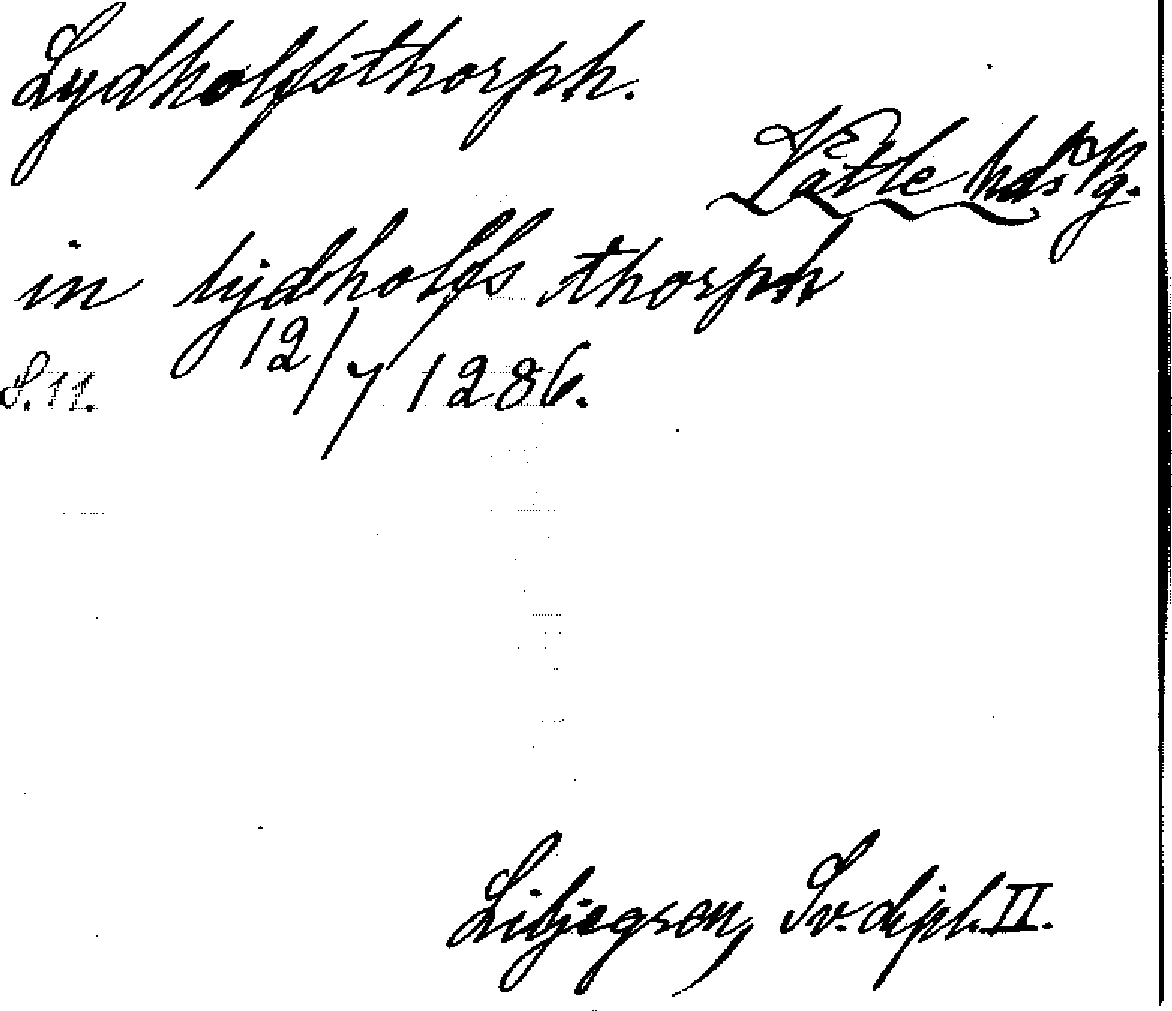 Lydholfsthorph.
Vätle hds Vg.
in lydholfs thorph
12/7 1286.
S. 11.
Liljegren, Sv. dipl. II.